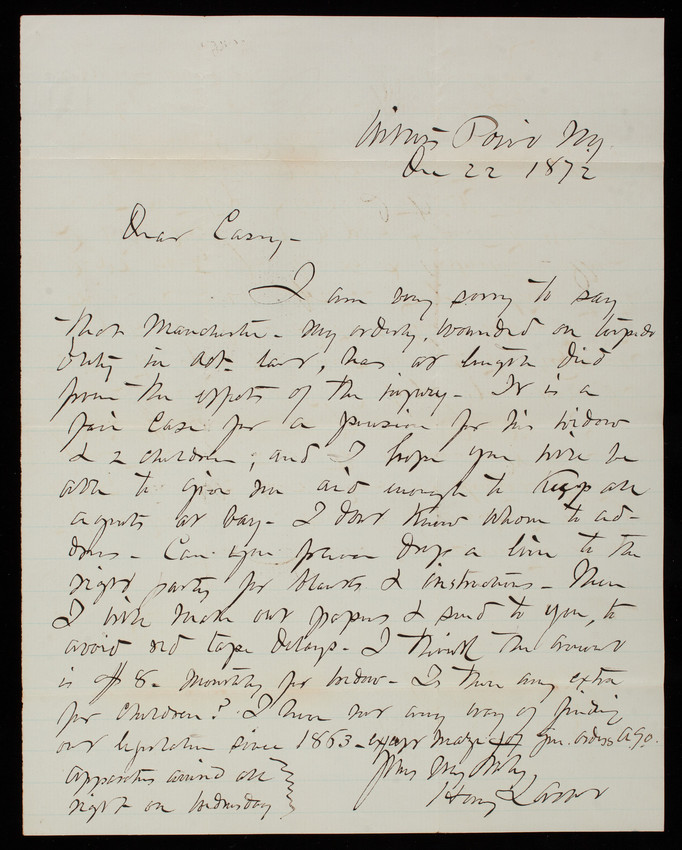 Willets Point N.Y.
Dec 22 1872
Dear Casey -
I am very sorry to say
that Manchester - my orderly, wounded on torpedo
duty in Oct. last, has at length died
from the effects of the injury - It is a
fair case for a pension for his widow
& 2 children; and I hope you will be
able to give me aid enough to keep all
agents at bay - I don't know whom to ad-
dress - Can you please drop a line to the
right party for blanks & instructions - Then
I will make out papers & send to you, to
avoid red tape delays - I think the amount
is $8 - monthly for widow - Is there any extra
for children? I have not any way of finding
out legislation since 1863 - except Gen. orders A.G.O.
Apparatus arrived all
right on Wednesday
Yours Very Truly
Henry L Abbot